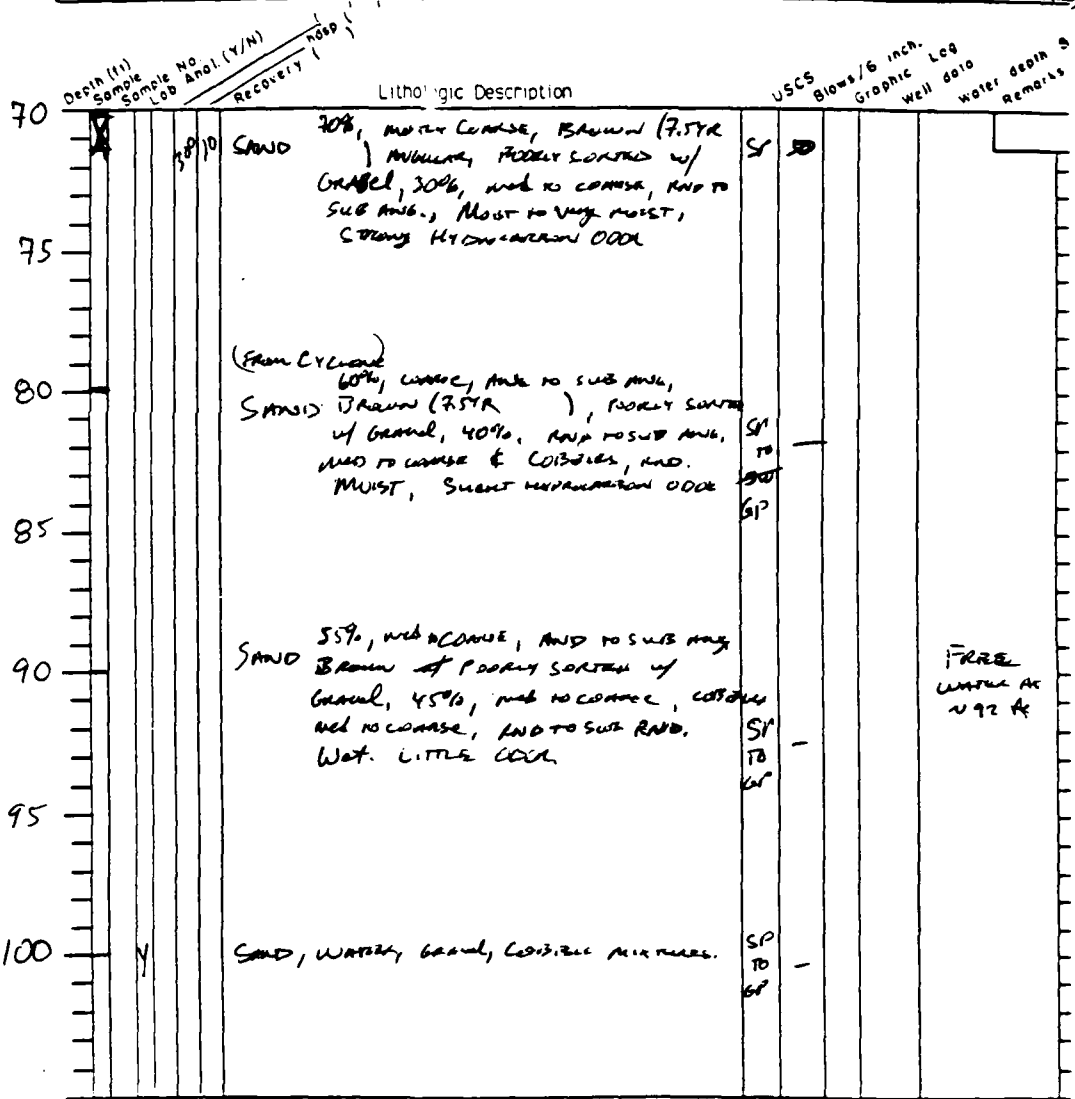 Depth (ft)
Sample
Sample No.
Lab Anal. (Y/N)
Recovery ( )
hdsp ( )
Lithologic Description
USCS
Blows/6 inch.
Graphic Log
Well data
Water depth
Remarks
70
SAND 70%, MOSTLY COARSE, BROWN (7.5YR
) ANGULAR, POORLY SORTED W/
GRAVEL, 30%, med TO COARSE, RND TO
SUB ANG., MOIST to Very MOIST,
STRONG HYDROCARBON ODOR
SP 50
75
(FROM CYCLONE)
60%, COARSE, ANG TO SUB ANG,
80
SAND BROWN (7.5YR ), POORLY SORTED
W/ GRAVEL, 40%, RND TO SUB ANG,
MED TO COARSE & COBBLES, RND.
MOIST, SLIGHT HYDROCARBON ODOR
SP
TO
SW
GP
85
55%, med to COARSE, RND TO SUB ANG
SAND
90
BROWN POORLY SORTED W/
GRAVEL, 45%, med TO COARSE, COBBLES
med TO COARSE, RND TO SUB RND.
Wet. LITTLE ODOR
SP
TO
GP
FREE
WATER AT
~ 92 ft
95
100
Y
SAND, WATER, GRAVEL, COBBLE MIXTURES.
SP
TO
GP